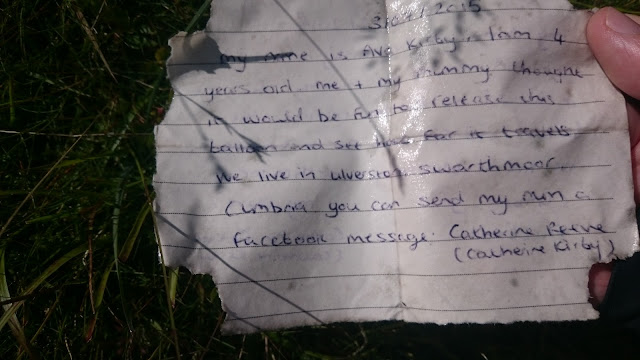 3/04/2015
my name is Ava Kirby + I am 4
years old me + my mummy thought
it would be fun to release this
balloon and see how far it travels
We live in ulverston swarthmoor
Cumbria you can send my mum a
facebook message: Catherine Reeve
(Catherine Kirby)